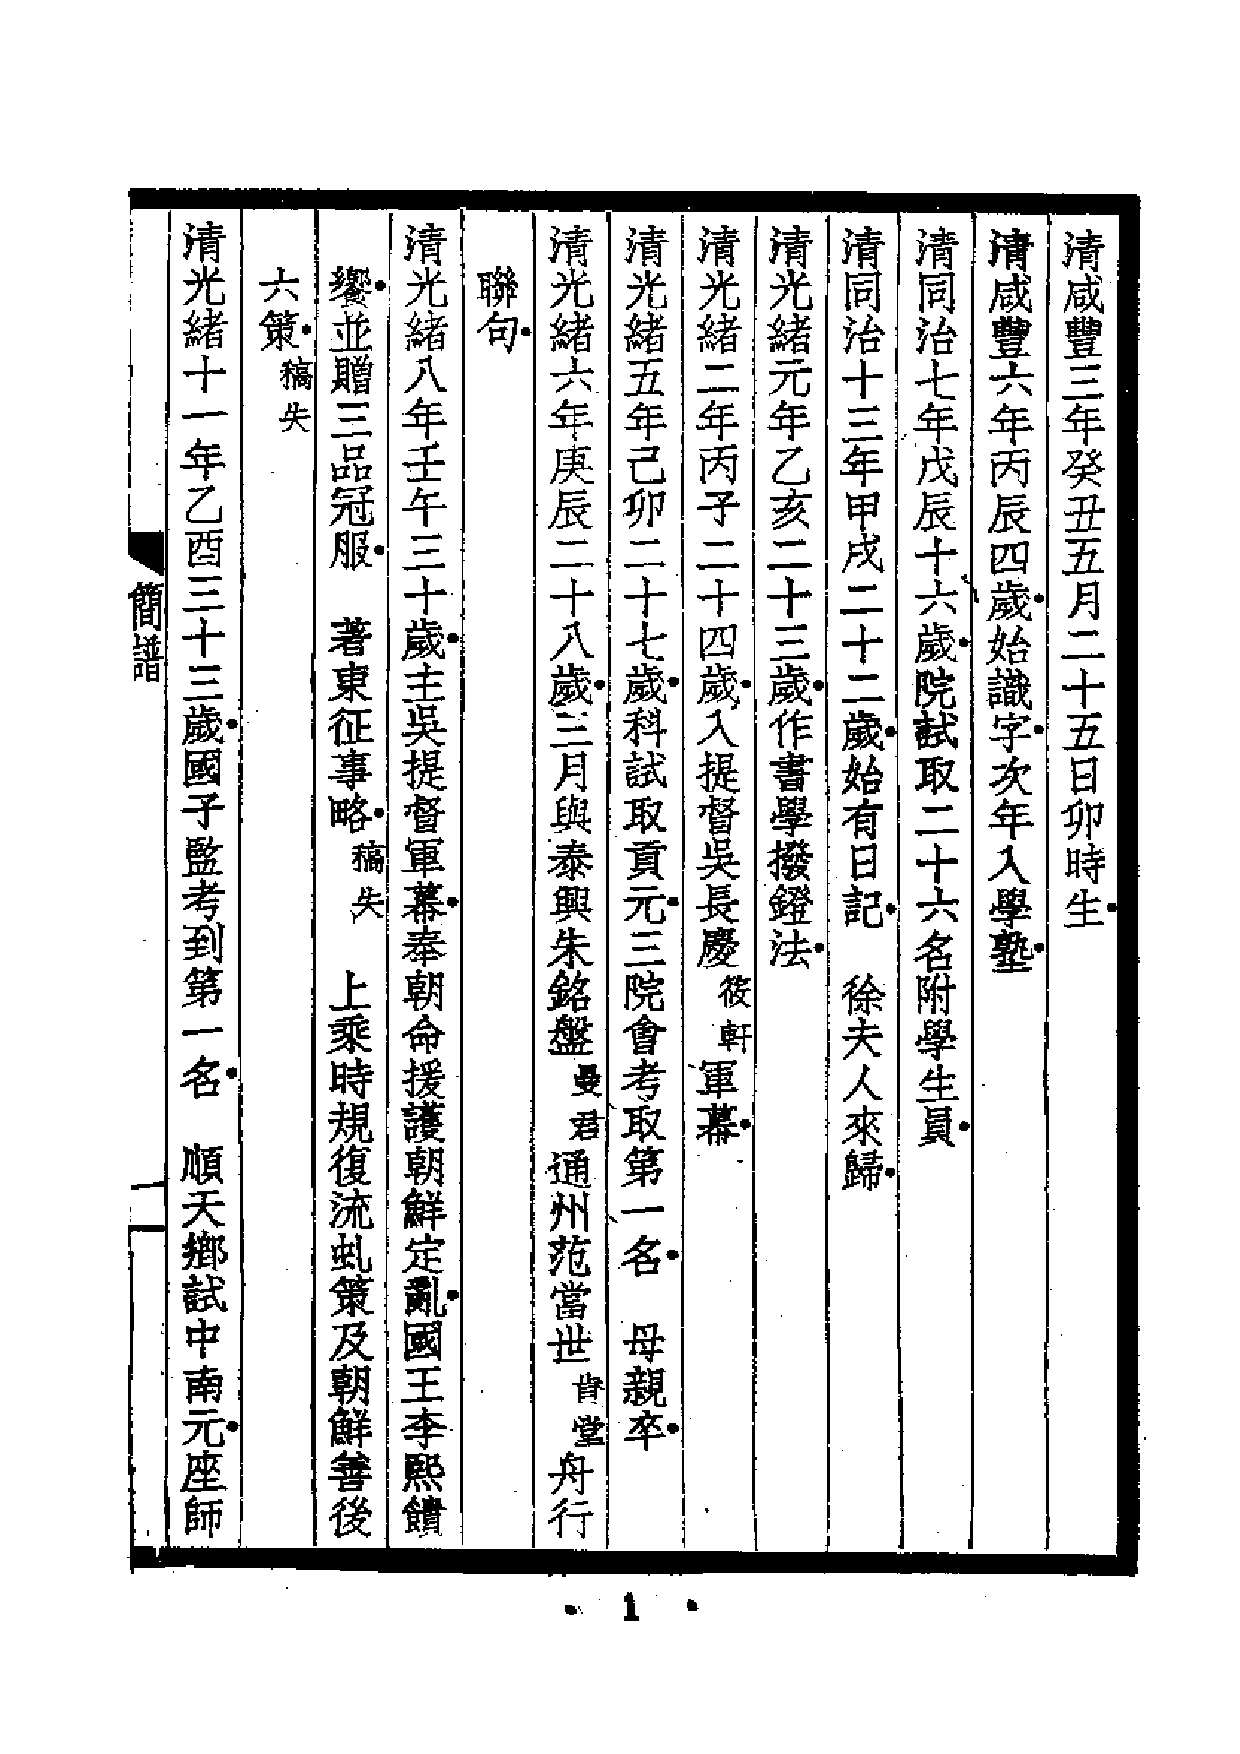 清咸豐三年癸丑五月二十五日卯時生•
清咸豐六年丙辰四歲•始識字•次年入學塾•
清同治七年戊辰十六歲•院試取二十六名附學生員•
清同治十三年甲戌二十二歲•始有日記•　徐夫人來歸•
清光緒元年乙亥二十三歲•作書學撥鐙法•
清光緒二年丙子二十四歲•入提督吳長慶筱軒軍幕•
清光緒五年己卯二十七歲•科試取貢元•三院會考取第一名•　母親卒•
清光緒六年庚辰二十八歲•三月與泰興朱銘盤曼君通州范當世肯堂舟行
聯句•
清光緒八年壬午三十歲•主吳提督軍幕•奉朝命援護朝鮮定亂•國王李熙饋
饗•並贈三品冠服•　著東征事略•稿失　上乘時規復流虬策及朝鮮善後
六策•稿失
清光緒十一年乙酉三十三歲•國子監考到第一名•　順天鄉試中南元•座師
簡譜
一
• 1 •